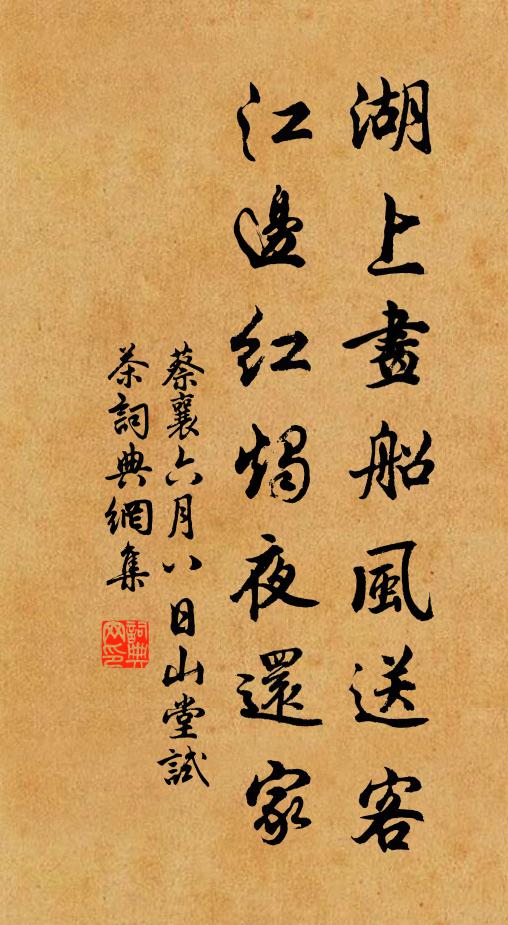 湖上畫船風送客
江邊紅燭夜還家
蔡襄六月八日山堂試
茶詞典網集
詞典網印